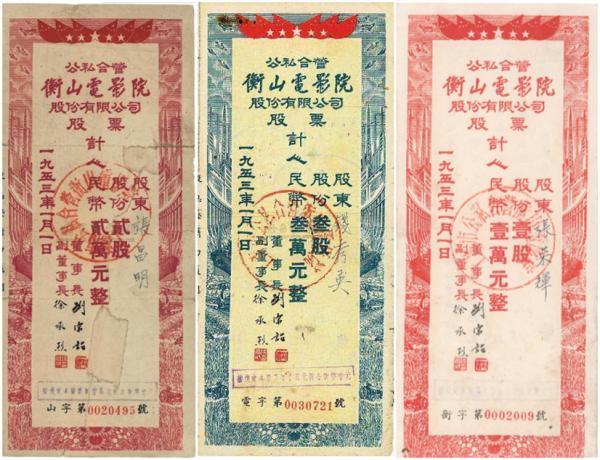 公私合營
衡山電影院
股份有限公司
股票
計
股東 張昌明
股份 貳股
人民幣 貳萬元整
一九五三年一月一日
董事長
副董事長 徐承烈
山字第0020495號
公私合營
衡山電影院
股份有限公司
股票
計
股東
股份 叁股
人民幣 叁萬元整
一九五三年一月一日
董事長
副董事長 徐承烈
電字第0030721號
公私合營
衡山電影院
股份有限公司
股票
計
股東
股份 壹股
人民幣 壹萬元整
一九五三年一月一日
董事長
副董事長 徐承烈
衡字第0002009號